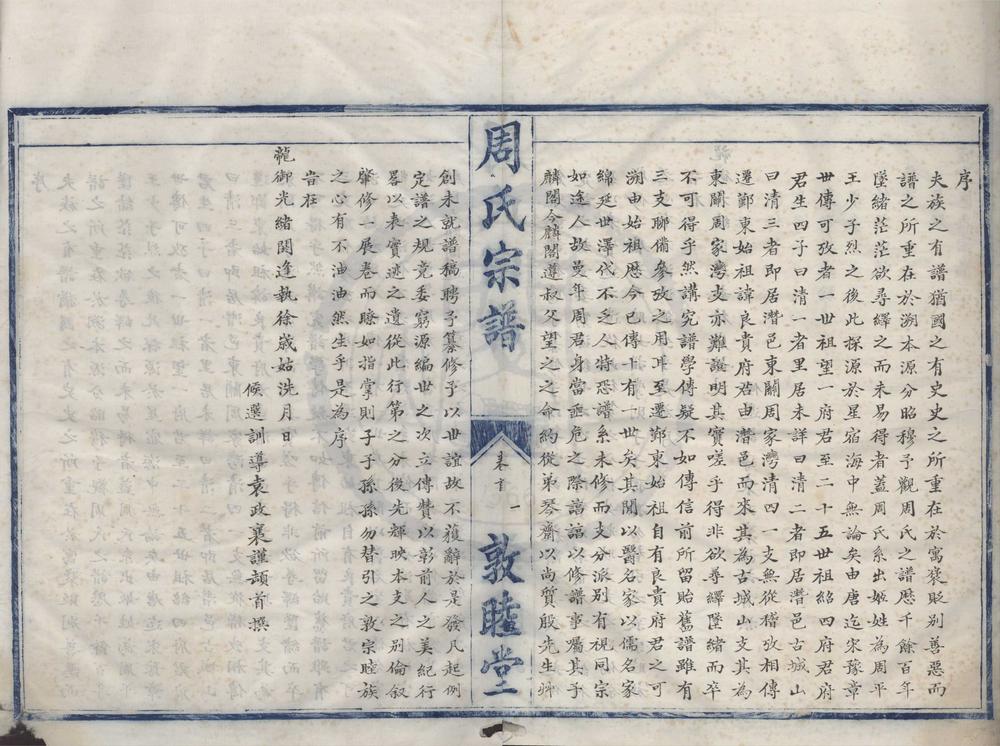 序
夫族之有譜猶國之有史史之所重在於寓褒貶别善惡而
譜之所重在於溯本源分昭穆予觀周氏之譜歴千餘百年
墜緒茫茫欲尋繹之而未易得者蓋周氏系出姬姓為周平
王少子烈之後此探源於星宿海中無論矣由唐迄宋豫章
世傳可攷者一世祖望一府君至二十五世祖紹四府君府
君生四子曰清一者里居未詳曰清二者即居潛邑古城山
曰清三者即居潛邑東關周家灣清四一支無從稽攷相傳
遷鄞東始祖諱良貴府君由潛邑而來其為古城山支其為
東關周家灣支亦難證明其實嗟乎得非欲尋繹墜緒而卒
不可得乎然講究譜學傳疑不如傳信前所留貽舊譜雖有
三支聊備參攷之用耳至遷鄞東始祖自有良貴府君之可
溯由始祖歴今已傳十有一世矣其間以醫名家以儒名家
綿延世澤代不乏人特恐譜系未修而支分派别有視同宗
如途人故曼年周君身當垂危之際諄諄以修譜事囑其子
麟閣今麟閣遵叔父望之之命約從弟琴齋以尚質殷先生艸
周氏宗譜
卷首
一
敦睦堂
創未就譜稿聘予纂修予以世誼故不獲辭於是發凡起例
定譜之規竟委窮源編世之次立傳贊以彰前人之美紀行
畧以表實迹之遺從此行第之分後先輝映本支之别倫叙
肇修一展卷而瞭如指掌則子子孫孫勿替引之敦宗睦族
之心有不油油然生乎是為序
旹在
龍御光緒閼逢執徐歲姑洗月日
候選訓導袁政襄謹頓首撰